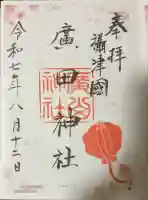 奉拝
攝津國
廣田神社
廣田神社
令和七年八月十二日